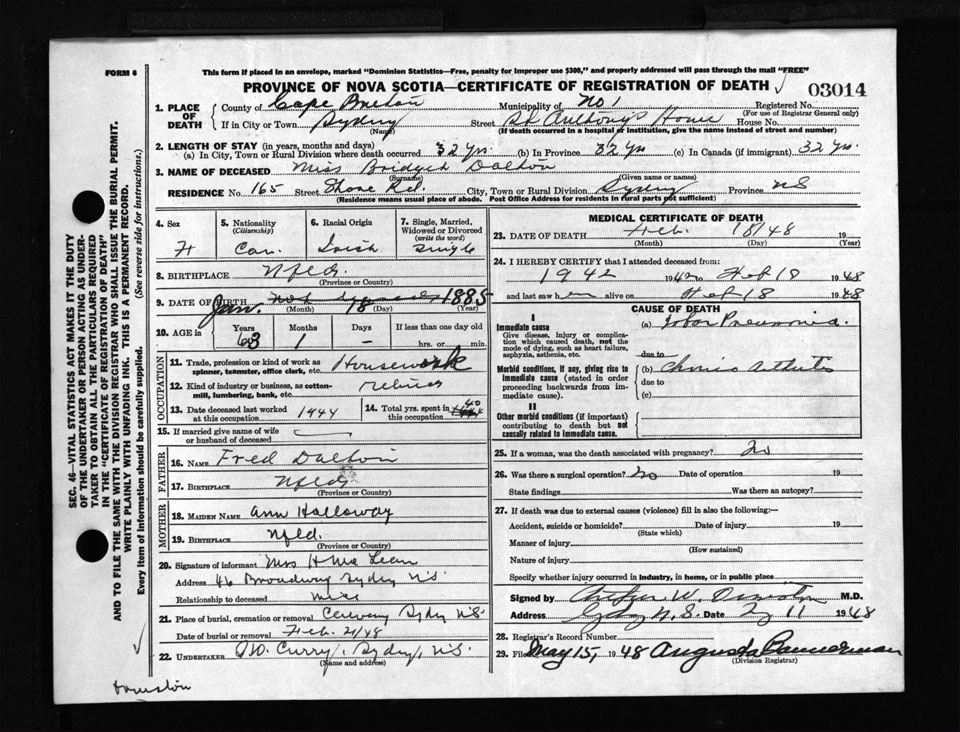 FORM 6
This form if placed in an envelope, marked "Dominion Statistics—Free, penalty for improper use $300," and properly addressed will pass through the mail "FREE"
PROVINCE OF NOVA SCOTIA—CERTIFICATE OF REGISTRATION OF DEATH
03014
1. PLACE OF DEATH
County of Cape Breton Municipality of No 1 Registered No.
(For use of Registrar General only)
If in City or Town Sydney Street St Anthony's Home House No.
(Name) (If death occurred in a hospital or institution, give the name instead of street and number)
2. LENGTH OF STAY (in years, months and days)
(a) In City, Town or Rural Division where death occurred 32 yrs. (b) In Province 32 yrs (c) In Canada (if immigrant) 32 yrs.
3. NAME OF DECEASED Miss Bridget Dalton
(Surname) (Given name or names)
RESIDENCE No. 165 Street Shore Rd. City, Town or Rural Division Sydney Province NS
(Residence means usual place of abode. Post Office Address for residents in rural parts not sufficient)
4. Sex
F
5. Nationality
(Citizenship)
Can.
6. Racial Origin
Irish
7. Single, Married, Widowed or Divorced
(write the word)
Single
8. BIRTHPLACE Nfld.
(Province or Country)
9. DATE OF BIRTH Jan. 18 1885
(Month) (Day) (Year)
10. AGE in
Years Months Days If less than one day old
63 1 – hrs. or min.
OCCUPATION
11. Trade, profession or kind of work as spinner, teamster, office clerk, etc. Housework
12. Kind of industry or business, as cotton-mill, lumbering, bank, etc.
13. Date deceased last worked at this occupation 1944
14. Total yrs. spent in this occupation 40
15. If married give name of wife or husband of deceased
FATHER
16. NAME Fred Dalton
17. BIRTHPLACE Nfld
(Province or Country)
MOTHER
18. MAIDEN NAME Ann Holloway
19. BIRTHPLACE Nfld.
(Province or Country)
20. Signature of informant Mrs
Address 46 Broadway Sydney N.S
Relationship to deceased niece
21. Place of burial, cremation or removal Sydney N.S.
Date of burial or removal Feb. 21/48
22. UNDERTAKER W. Curry, Sydney, N.S.
(Name and address)
MEDICAL CERTIFICATE OF DEATH
23. DATE OF DEATH Feb. 18/48
(Month) (Day) (Year)
24. I HEREBY CERTIFY that I attended deceased from:
1942 1942 to Feb 18 1948
and last saw her alive on Feb 18 1948
CAUSE OF DEATH
I
Immediate cause
Give disease, injury or complication which caused death, not the mode of dying, such as heart failure, asphyxia, asthenia, etc.
(a) Lobar Pneumonia.
due to
Morbid conditions, if any, giving rise to immediate cause (stated in order proceeding backwards from immediate).
(b) Chronic Arthritis
due to
(c)
II
Other morbid conditions (if important) contributing to death but not causally related to immediate cause.
25. If a woman, was the death associated with pregnancy? No
26. Was there a surgical operation? No Date of operation 19
State findings Was there an autopsy?
27. If death was due to external causes (violence) fill in also the following:—
Accident, suicide or homicide? Date of injury 19
(State which)
Manner of injury
(How sustained)
Nature of injury
Specify whether injury occurred in industry, in home, or in public place
Signed by W. M.D.
Address Sydney N.S. Date 11 1948
28. Registrar's Record Number
29. Filed May 15, 1948 Augusta Bannerman
(Division Registrar)
SEC. 46—VITAL STATISTICS ACT MAKES IT THE DUTY
OF THE UNDERTAKER OR PERSON ACTING AS UNDER-
TAKER TO OBTAIN ALL THE PARTICULARS REQUIRED
IN THE "CERTIFICATE OF REGISTRATION OF DEATH"
AND TO FILE THE SAME WITH THE DIVISION REGISTRAR WHO SHALL ISSUE THE BURIAL PERMIT.
WRITE PLAINLY WITH UNFADING INK. THIS IS A PERMANENT RECORD.
Every item of Information should be carefully supplied. (See reverse side for instructions.)